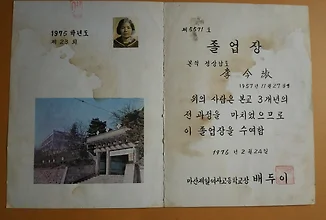 1975 학년도
제 23 회
제 5571 호
졸업장
본적 경상남도
李今淑
1957년 11월 27일생
위의 사람은 본교 3개년의
전 과정을 마치었으므로
이 졸업장을 수여함
1976년 2월 24일
마산제일여자고등학교장 배두이